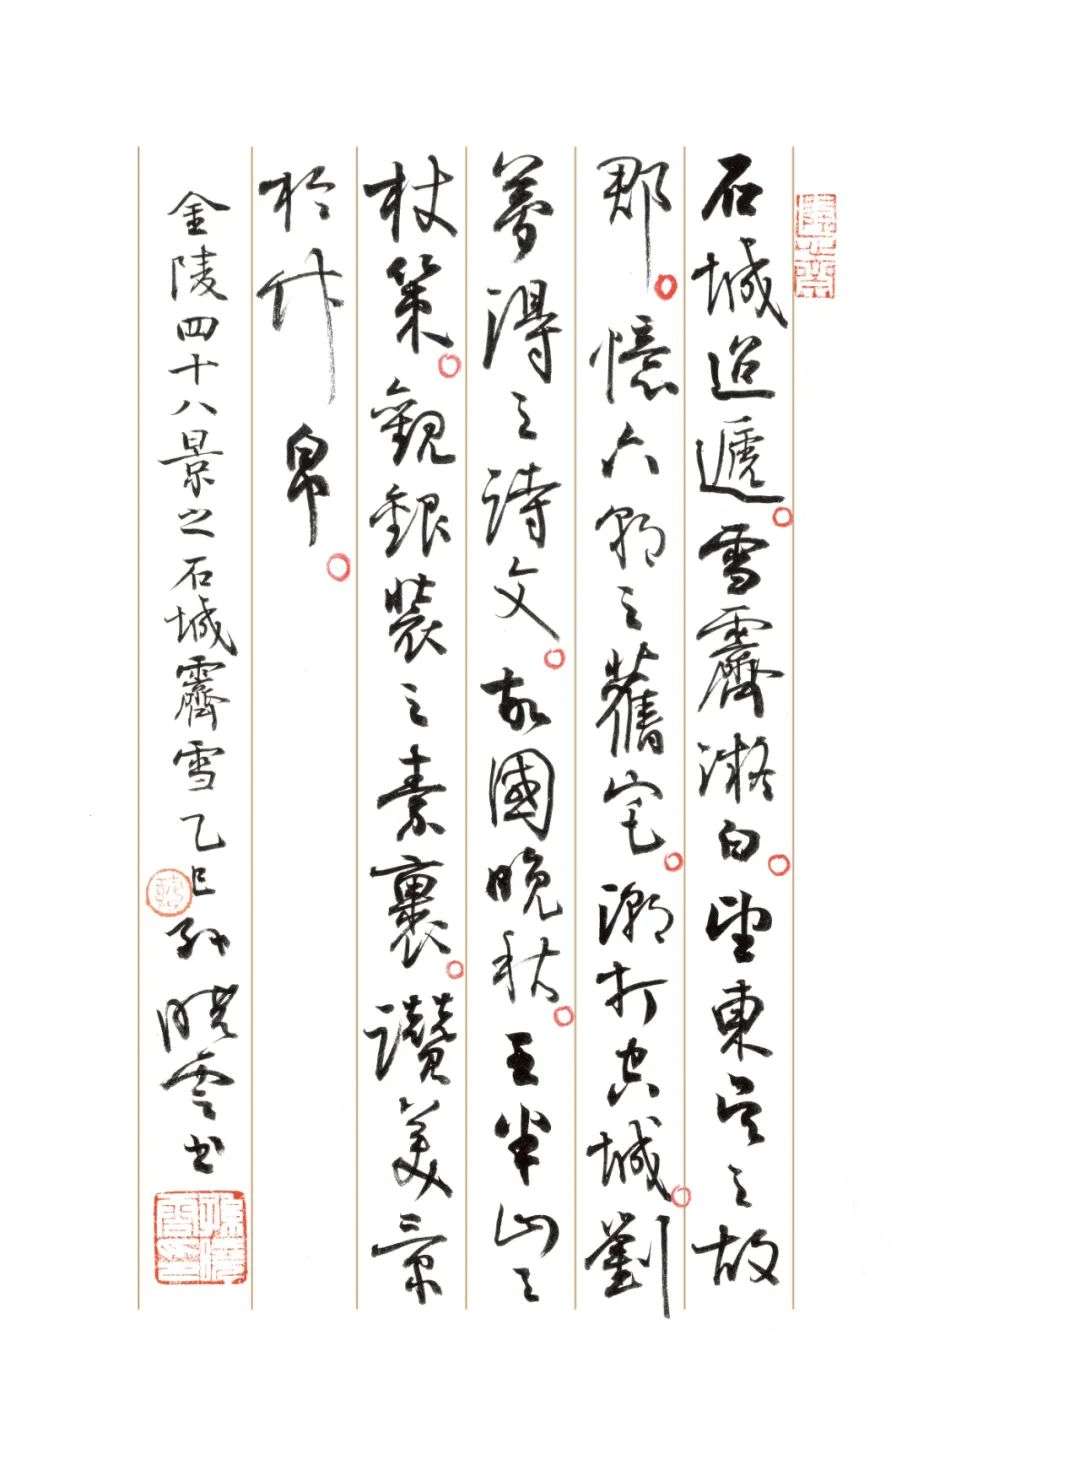 石城迢遞雪霽凝白望東吳之故
郡憶六朝之舊宅潮打空城劉
夢得之詩文故國晚秋王半山之
杖策觀銀裝之素裹讚美景
於竹帛
金陵四十八景之石城霽雪乙巳孫曉雲書